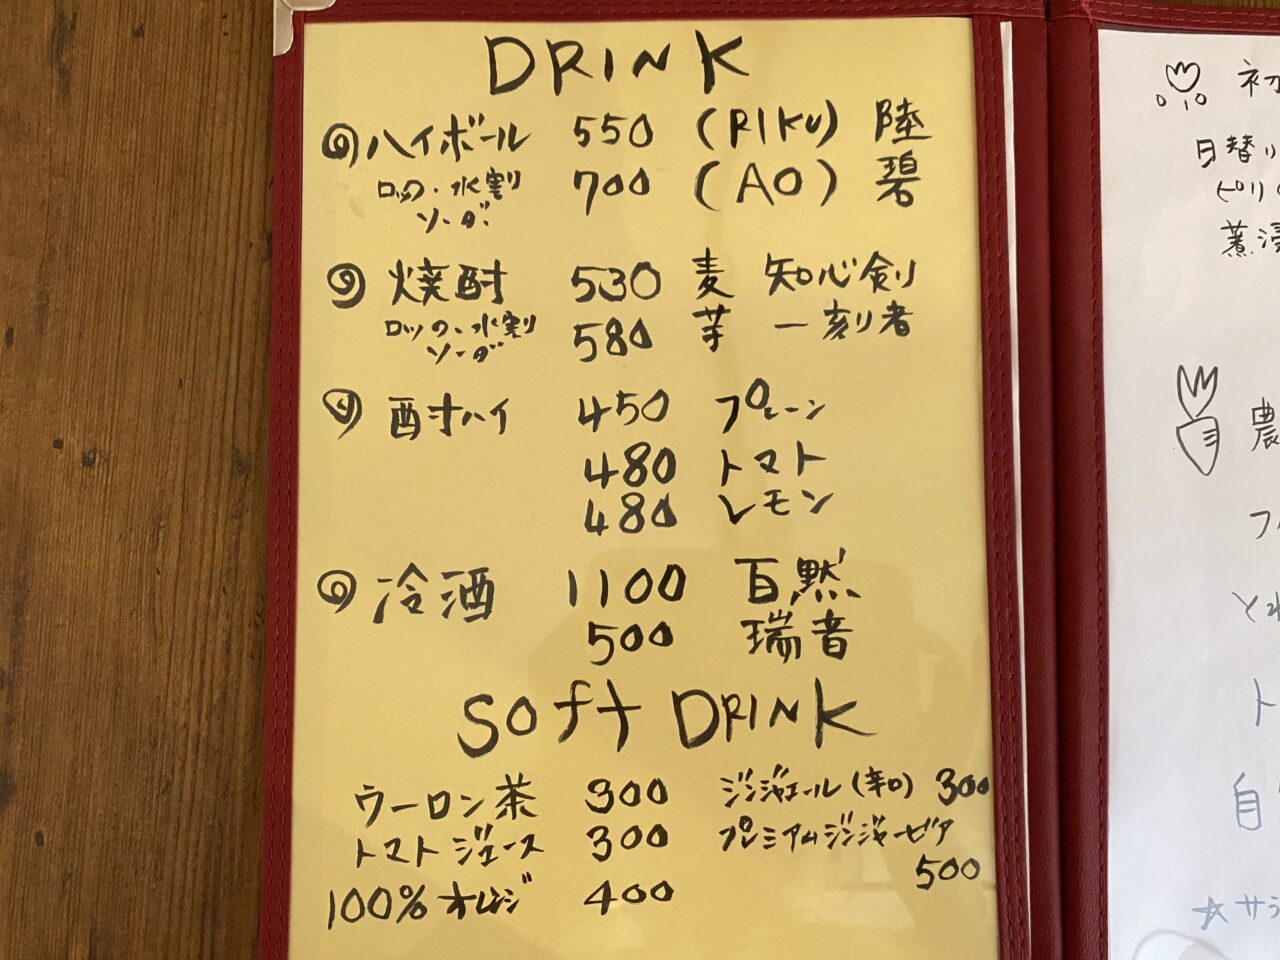 DRINK
ハイボール 550 (RIKU) 陸
ロック・水割り 700 (AO) 碧
ソーダ
焼酎 530 麦 知心剣
ロック・水割り 580 芋 一刻者
ソーダ
酎ハイ 450 プレーン
480 トマト
480 レモン
冷酒 1100 百黙
500 瑞音
SOFT DRINK
ウーロン茶 300 ジンジャエール(辛口) 300
トマトジュース 300 プレミアムジンジャービア
500
100%オレンジ 400
初
日替り
ピリ
蒸
農
と
ト
自
☆サラ